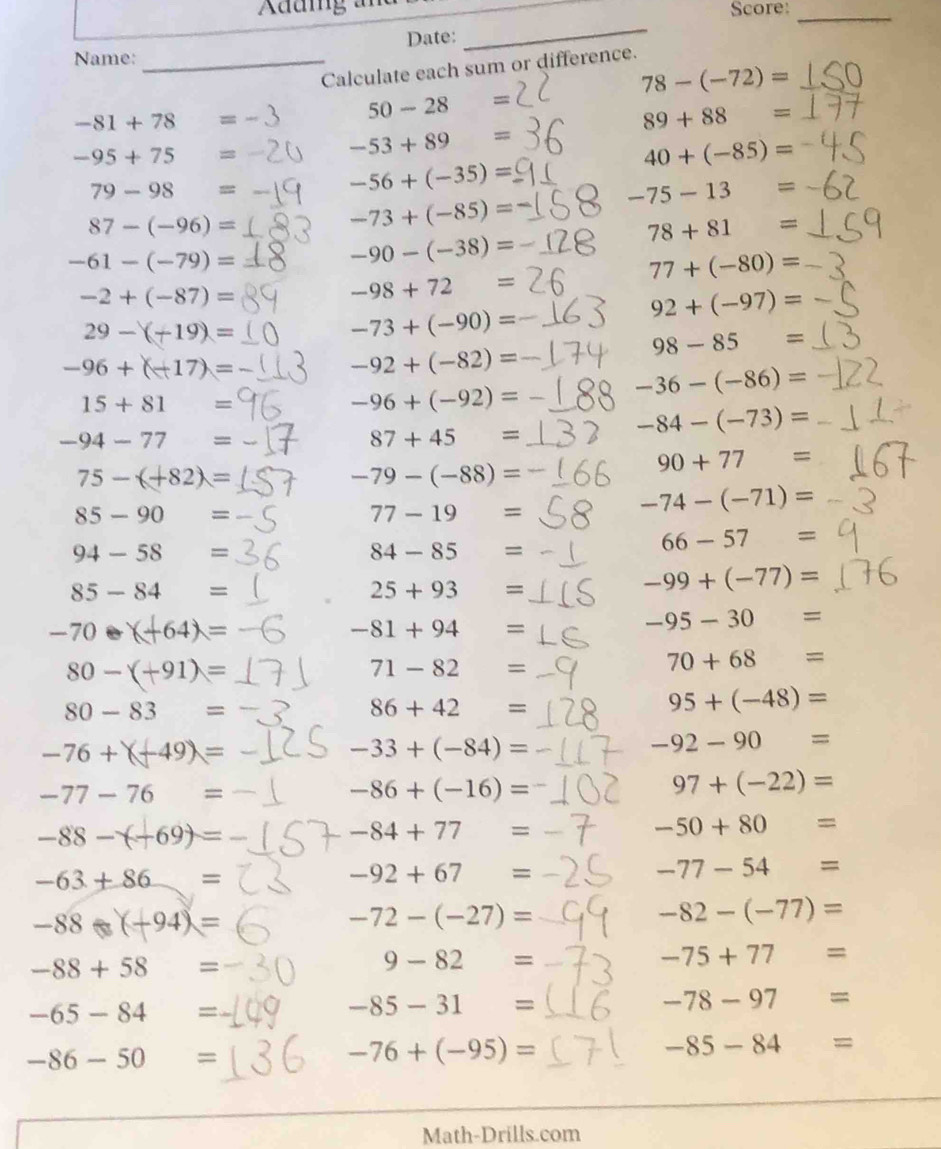 Adding and
Score:
Name:
Date:
Calculate each sum or difference.
-81 + 78 = -3
-95 + 75 = -20
79 - 98 = -19
87 - (-96) = 183
-61 - (-79) = 18
-2 + (-87) = 89
29 - (+19) = 10
-96 + (+17) = -113
15 + 81 = 96
-94 - 77 = -17
75 - (+82) = 157
85 - 90 = -5
94 - 58 = 36
85 - 84 = 1
-70 (+64) = -6
80 - (+91) = 171
80 - 83 = -3
-76 + (+49) = -125
-77 - 76 = -1
-88 - (+69) = -157
-63 + 86 = 23
-88 (+94) = 6
-88 + 58 = -30
-65 - 84 = -149
-86 - 50 = 136
50 - 28 = 22
-53 + 89 = 36
-56 + (-35) = -91
-73 + (-85) = -158
-90 - (-38) = -128
-98 + 72 = 26
-73 + (-90) = -163
-92 + (-82) = -174
-96 + (-92) = -188
87 + 45 = 132
-79 - (-88) = -166
77 - 19 = 58
84 - 85 = -1
25 + 93 = 115
-81 + 94 = 16
71 - 82 = -9
86 + 42 = 128
-33 + (-84) = -117
-86 + (-16) = -102
-84 + 77 = -7
-92 + 67 = -25
-72 - (-27) = -99
9 - 82 = -73
-85 - 31 = 116
-76 + (-95) = 171
78 - (-72) = 150
89 + 88 = 177
40 + (-85) = -45
-75 - 13 = -62
78 + 81 = 159
77 + (-80) = -3
92 + (-97) = -5
98 - 85 = 13
-36 - (-86) = -122
-84 - (-73) = -11
90 + 77 = 167
-74 - (-71) = -3
66 - 57 = 9
-99 + (-77) = 176
-95 - 30 =
70 + 68 =
95 + (-48) =
-92 - 90 =
97 + (-22) =
-50 + 80 =
-77 - 54 =
-82 - (-77) =
-75 + 77 =
-78 - 97 =
-85 - 84 =
Math-Drills.com